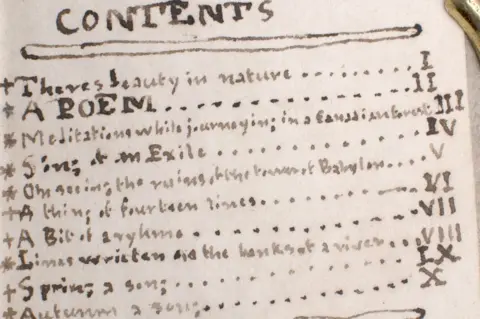 CONTENTS
+ Theres beauty in nature ......... I
* A POEM ......... II
* Meditations while journeying in a Canadian forest III
* Song of an Exile ......... IV
* On seeing the ruins of the tower of Babylon .... V
+ A thing of fourteen lines ......... VI
+ A Bit of a ryhme ......... VII
* Lines written on the banks of a river ... VIII
+ Spring a song ......... IX
+ Autumn a song ......... X